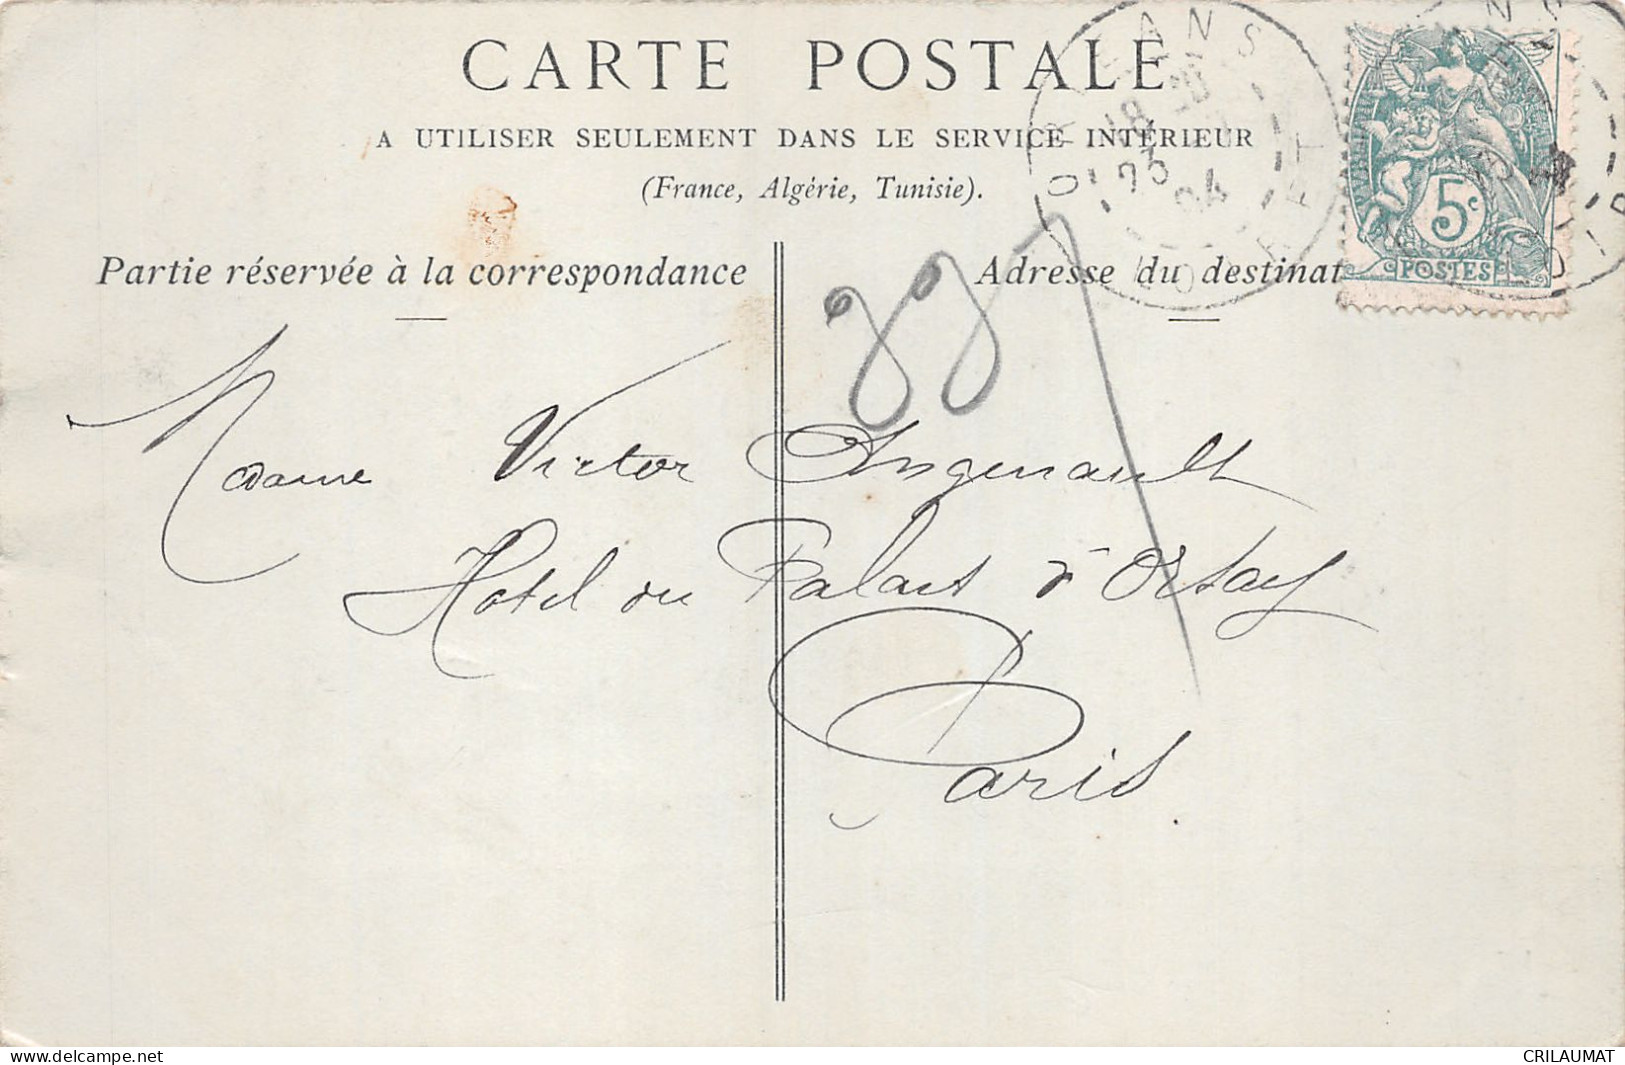 CARTE POSTALE
A UTILISER SEULEMENT DANS LE SERVICE INTÉRIEUR
(France, Algérie, Tunisie).
Partie réservée à la correspondance
Adresse du destinat
ORLEANS
18 20
04
LOIRET
5c
POSTES
Madame Victor Angenault
Hotel du Palais d'Orsay
Paris.
www.delcampe.net
CRILAUMAT